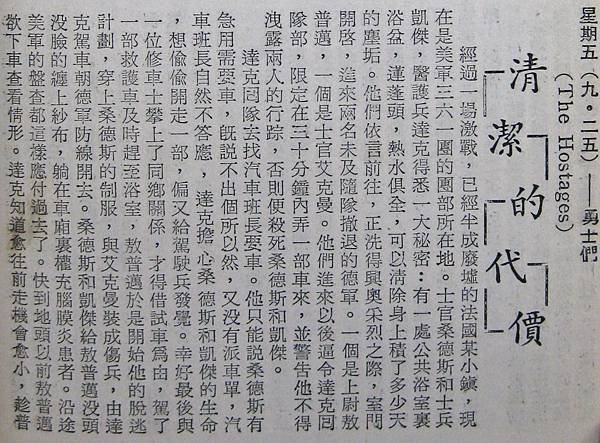 星期五(九·二五)——勇士們
(The Hostages)
清潔的代價
經過一場激戰,已經半成廢墟的法國某小鎮,現
在是美軍三六一團的團部所在地。士官桑德斯和士兵
凱傑,醫護兵達克得悉一大秘密:有一處公共浴室裏
浴盆,蓮蓬頭,熱水俱全,可以清除身上積了多少天
的塵垢。他們依言前往,正洗得興奧采烈之際,室門
開啓,進來兩名未及隨隊撤退的德軍。一個是上尉敖
普邁,一個是士官艾克曼。他們進來以後逼令達克囘
隊部,限定在三十分鐘內弄一部車來,並警告他不得
洩露兩人的行踪,否則便殺死桑德斯和凱傑。
達克囘隊去找汽車班長要車。他只能說桑德斯有
急用需要車,旣說不出個所以然,又没有派車單,汽
車班長自然不答應,達克擔心桑德斯和凱傑的生命
,想偷偷開走一部,偏又給駕駛兵發覺。幸好最後與
一位修車士攀上了同鄉關係,才得借試車爲由,駕了
一部救護車及時趕至浴室,敖普邁於是開始他的脫逃
計劃,穿上桑德斯的制服,與艾克曼裝成傷兵,由達
克駕車朝德軍防線開去。桑德斯和凱傑給敖普邁没頭
没臉的纏上紗布,躺在車廂裏權充腦膜炎患者。沿途
美軍的盤查都這樣應付過去了。快到地頭以前敖普邁
欲下車查看情形。達克知道愈往前走機會愈小,趁普